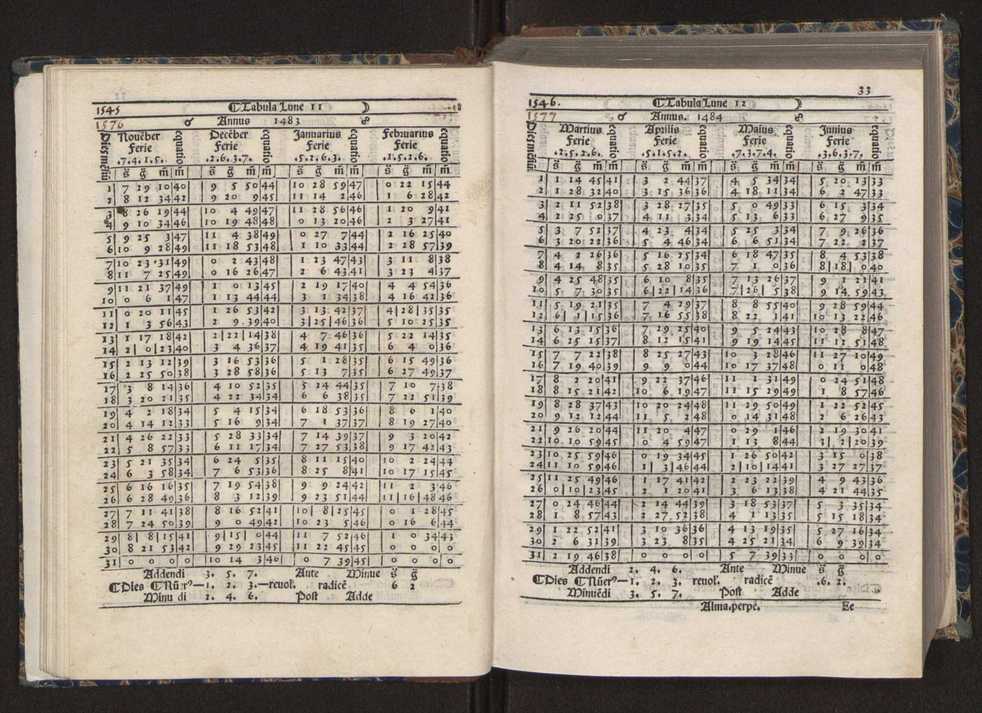 1545
☾Tabula Lune 11 ☽
1576
♂ Annus 1483 ☍
Nouēber Decēber Januarius Februarius
Ferie Ferie Ferie Ferie
.7.4.1.5. .2.6.3.7. .5.2.6.3. .1.5.2.6.
s̄ ḡ m̄ m̄ s̄ ḡ m̄ m̄ s̄ ḡ m̄ m̄ s̄ ḡ m̄ m̄
1 7 29 10 40 9 5 50 44 10 28 59 47 0 22 15 44
2 8 12 34 42 9 20 9 45 11 14 2 46 1 6 28 42
3 8 26 19 44 10 4 49 47 11 28 56 46 1 20 9 42
4 9 10 34 46 10 19 48 48 0 13 20 46 2 3 27 41
5 9 25 3 47 11 4 38 49 0 27 7 44 2 16 25 40
6 10 9 28 49 11 18 53 48 1 10 33 44 2 28 57 39
7 10 23 31 49 0 2 43 48 1 23 47 43 3 11 8 38
8 11 7 25 49 0 16 26 47 2 6 43 41 3 23 4 37
9 11 21 37 49 1 0 13 45 2 19 17 40 4 4 54 36
10 0 6 1 47 1 13 44 44 3 1 34 38 4 16 42 36
11 0 20 11 45 1 26 53 42 3 13 42 37 4 28 35 35
12 1 3 56 43 2 9 39 40 3 25 46 36 5 10 25 35
13 1 17 18 42 2 22 14 38 4 7 46 36 5 22 14 35
14 2 0 23 40 3 4 36 37 4 19 41 35 6 4 0 36
15 2 13 12 39 3 16 53 36 5 1 28 35 6 15 49 36
16 2 25 50 38 3 28 58 36 5 13 7 35 6 27 49 37
17 3 8 14 36 4 10 52 35 5 24 44 35 7 10 7 38
18 3 20 21 35 4 22 34 34 6 6 38 35 7 22 51 39
19 4 2 18 34 5 4 15 34 6 18 53 36 8 6 1 40
20 4 14 12 33 5 16 9 34 7 1 37 37 8 19 27 40
21 4 26 22 33 5 28 33 34 7 14 39 37 9 3 20 42
22 5 8 57 33 6 11 17 34 7 27 53 38 9 17 42 43
23 5 21 35 34 6 24 5 35 8 11 15 40 10 2 24 44
24 6 3 58 34 7 6 53 36 8 25 8 41 10 17 15 45
25 6 16 16 35 7 19 54 38 9 9 24 42 11 2 3 46
26 6 28 49 36 8 3 12 39 9 23 51 44 11 16 48 46
27 7 11 41 38 8 16 52 41 10 8 25 45 0 1 28 45
28 7 24 50 39 9 0 49 42 10 23 5 46 0 16 6 44
29 8 8 15 41 9 15 0 44 11 7 52 46 1 0 34 43
30 8 21 53 42 9 29 23 45 11 22 45 45 0 0 0 0
31 0 0 0 0 10 14 3 46 0 7 39 45 0 0 0 0
Addendi 3. 5. 7. Ante Minue s̄ ḡ
☾Dies ☾Nūr⁹—1. 2. 3.—reuol. radicē 6 2
Minu di 2. 4. 6. Post Adde
33
1546.
☾Tabula Lune 12 ☽
1577
♂ Annus. 1484 ☍
Martius Aprilis Maius Junius
Ferie Ferie Ferie Ferie
.2.5.2.6. .5.1.5.2. .7.3.7.4. .3.6.3.7.
s̄ ḡ m̄ m̄ s̄ ḡ m̄ m̄ s̄ ḡ m̄ m̄ s̄ ḡ m̄ m̄
1 1 14 45 41 3 2 44 37 4 5 34 34 5 20 13 33
2 1 28 32 40 3 15 36 36 4 18 11 34 6 2 47 33
3 2 11 52 38 3 28 27 35 5 0 49 33 6 15 3 34
4 2 25 0 37 4 11 3 34 5 13 6 33 6 27 9 35
5 3 7 52 37 4 23 4 34 5 25 3 34 7 9 26 36
6 3 20 22 36 5 4 46 34 6 6 51 34 7 22 2 37
7 4 2 26 36 5 16 25 34 6 18 47 35 8 4 53 38
8 4 14 8 35 5 28 10 35 7 1 0 36 8 18 0 40
9 4 25 48 35 6 10 8 35 7 13 26 37 9 1 21 41
10 5 7 30 35 6 22 14 36 7 26 5 38 9 14 59 43
11 5 19 21 35 7 4 29 37 8 8 55 40 9 28 59 44
12 6 1 15 36 7 16 55 38 8 22 3 41 10 13 22 46
13 6 13 15 36 7 29 25 40 9 5 24 43 10 28 8 47
14 6 25 15 37 8 12 15 41 9 19 14 45 11 12 51 48
15 7 7 22 38 8 25 27 43 10 3 28 46 11 27 10 49
16 7 19 40 39 9 9 0 44 10 17 37 48 0 11 0 48
17 8 2 20 41 9 22 37 46 11 1 31 49 0 24 51 48
18 8 15 21 42 10 6 19 47 11 15 29 49 1 8 57 46
19 8 28 37 43 10 20 24 48 11 29 50 49 1 22 52 45
20 9 12 12 44 11 5 2 48 0 14 31 48 2 6 26 43
21 9 26 20 44 11 20 4 47 0 29 1 46 2 19 30 41
22 10 10 59 45 0 4 59 47 1 13 8 44 3 2 20 39
23 10 25 59 46 0 19 34 45 1 26 50 42 3 15 0 38
24 11 10 59 46 1 3 46 44 2 10 14 41 3 27 27 37
25 11 25 49 46 1 17 41 42 2 23 22 39 4 9 43 36
26 0 10 23 45 2 1 20 41 3 6 13 38 4 21 44 35
27 0 24 46 44 2 14 44 39 3 18 53 37 5 3 35 34
28 1 8 57 43 2 27 52 38 4 1 13 35 5 15 18 34
29 1 22 52 41 3 10 36 36 4 13 19 35 5 27 16 34
30 2 6 31 39 3 23 8 35 4 25 21 34 6 9 39 34
31 2 19 46 38 0 0 0 0 5 7 39 33 0 0 0 0
Addendi 2. 4. 6. Ante Minue s̄ ḡ
☾Dies ☾Nūer⁹—1. 2. 3. reuol. radicē .6. 2.
Minuēdi 3. 5. 7. Post Adde
Alma.perpē. Ee